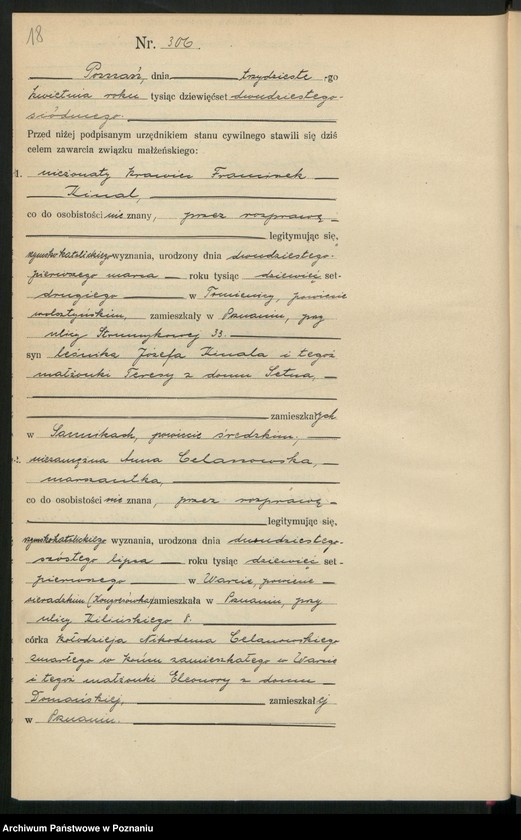 18
Nr. 306.
Poznań, dnia trzydzieste -go
kwietnia roku tysiąc dziewięćset dwudziestego-
siódmego.
Przed niżej podpisanym urzędnikiem stanu cywilnego stawili się dziś
celem zawarcia związku małżeńskiego:
1. nieżonaty krawiec Franciszek
Kinal,
co do osobistości nie znany, przez rozprawę
legitymując się,
rzymsko katolickiego wyznania, urodzony dnia dwudziestego-
pierwszego marca roku tysiąc dziewięć set-
drugiego w powiecie
wolsztyńskim, zamieszkały w Poznaniu, przy
ulicy Strumykowej 33.
syn leśnika Józefa Kinala i tegoż
małżonki Teresy z domu
zamieszkałych
w Sannikach, powiecie średzkim;
2. niezamężna Anna Celanowska,
co do osobistości nie znana, przez rozprawę
legitymując się,
rzymsko katolickiego wyznania, urodzona dnia dwudziestego-
szóstego lipca roku tysiąc dziewięć set-
pierwszego w Warcie, powiecie
sieradzkim (Kongresówka) zamieszkała w Poznaniu, przy
ulicy Kilińskiego 8.
córka kołodzieja Nikodema Celanowskiego
zmarłego w zamieszkałego w Warcie
i tegoż małżonki Eleonory z domu
Domańskiej, zamieszkałej
w Poznaniu.
Archiwum Państwowe w Poznaniu